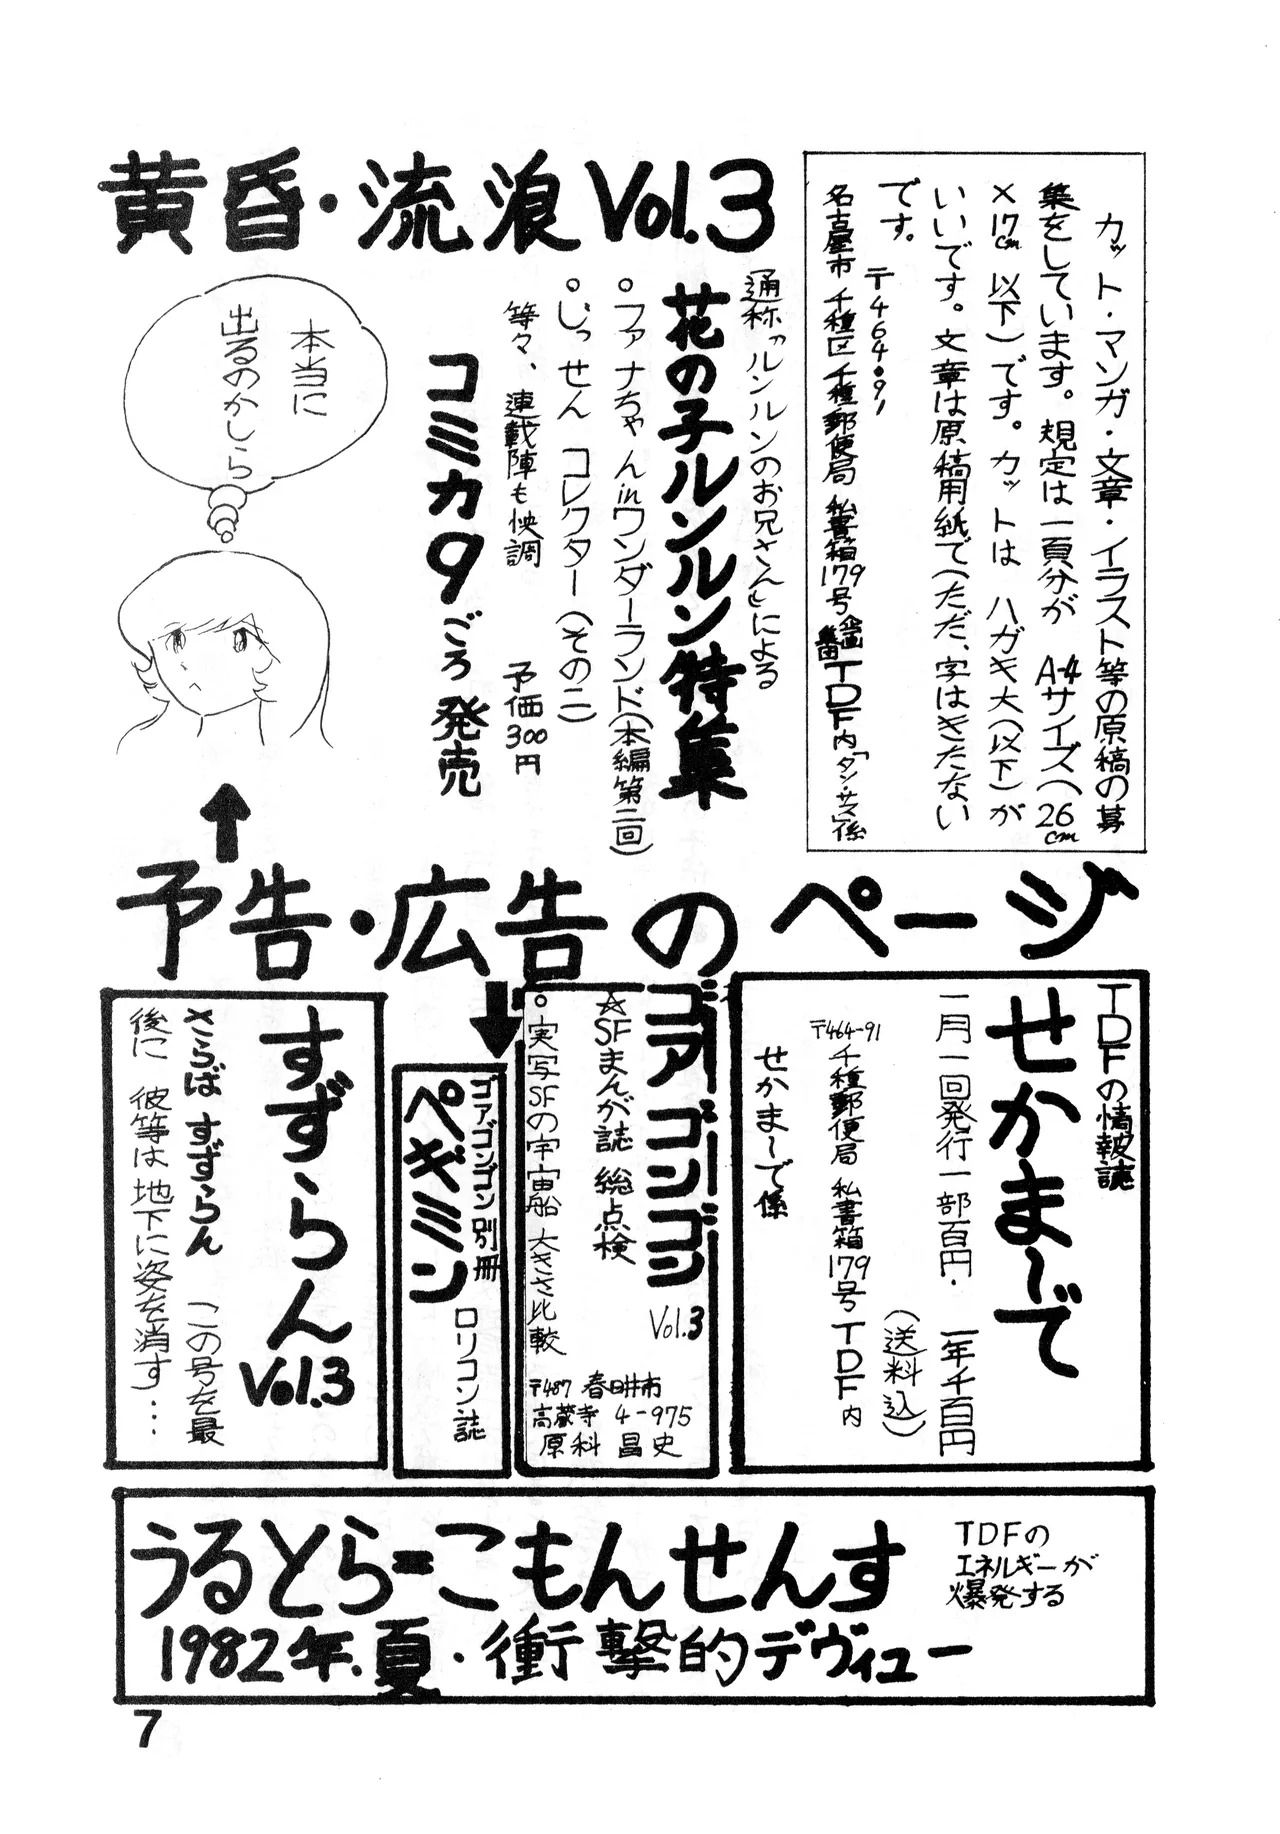 カット・マンガ・文章・イラスト等の原稿の募
集をしています。規定は一頁分が A-4サイズ(26cm
×17cm以下)です。カットは ハガキ大(以下)が
いいです。文章は原稿用紙で(ただ、字はきたない
です。
〒464・91
名古屋市千種区千種郵便局 私書箱179号 企画集団TDF内「タン・サス」係
黄昏・流浪Vol.3
通称〝ルンルンのお兄さん〟による
花の子ルンルン特集
○ファナちゃんinワンダーランド(本編第二回)
○じっせん コレクター(その二)
等々、連載陣も快調 予価300円
コミカ9ごろ発売
本当に
出るのかしら
予告・広告のページ
TDFの情報誌
せかま〜で
一月一回発行一部百円・一年千百円
(送料込)
〒464-91
千種郵便局 私書箱179号 TDF内
せかま〜で係
ゴアゴンゴン
Vol.3
☆SFまんが誌 総点検
○実写SFの宇宙船 大きさ比較
〒487 春日井市
高蔵寺 4-975
原科 昌史
ゴアゴンゴン別冊
ペギミン
ロリコン誌
すずらん
Vol.3
さらば すずらん この号を最
後に 彼等は地下に姿を消す…
うるとら=こもんせんす
TDFの
エネルギーが
爆発する
1982年.夏・衝撃的デヴィュー
7